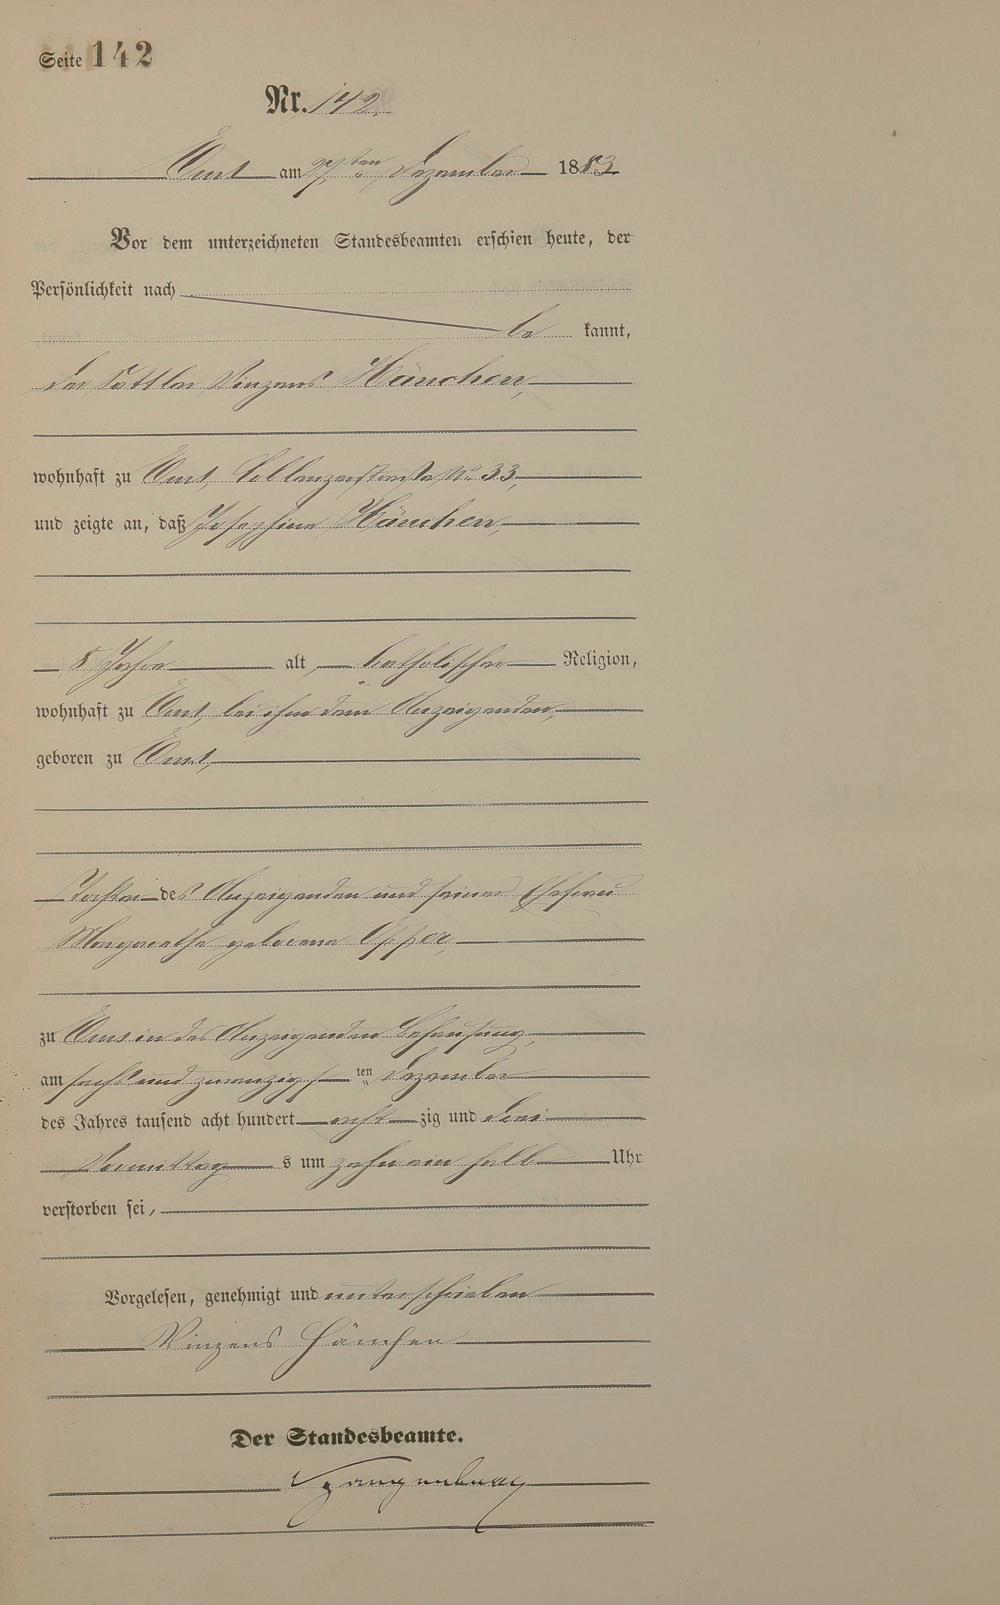 Seite 142
Nr. 142.
Ems am 27ten Dezember 1883
Vor dem unterzeichneten Standesbeamten erschien heute, der
Persönlichkeit nach
be kannt,
der Sattler Vinzens Hänchen,
wohnhaft zu Ems, Coblenzerstraße No 33,
und zeigte an, daß Josephine Hänchen,
8 Jahre alt, katholischer Religion,
wohnhaft zu Ems, bei ihm dem Anzeigenden,
geboren zu Ems,
Tochter des Anzeigenden und seiner Ehefrau
Margarethe geborene Opper,
zu Ems in des Anzeigenden Behausung,
am sechs und zwanzigsten Dezember
des Jahres tausend acht hundert acht zig und drei
Vormittag s um zehn ein halb Uhr
verstorben sei,
Vorgelesen, genehmigt und unterschrieben
Vinzens Hänchen
Der Standesbeamte.